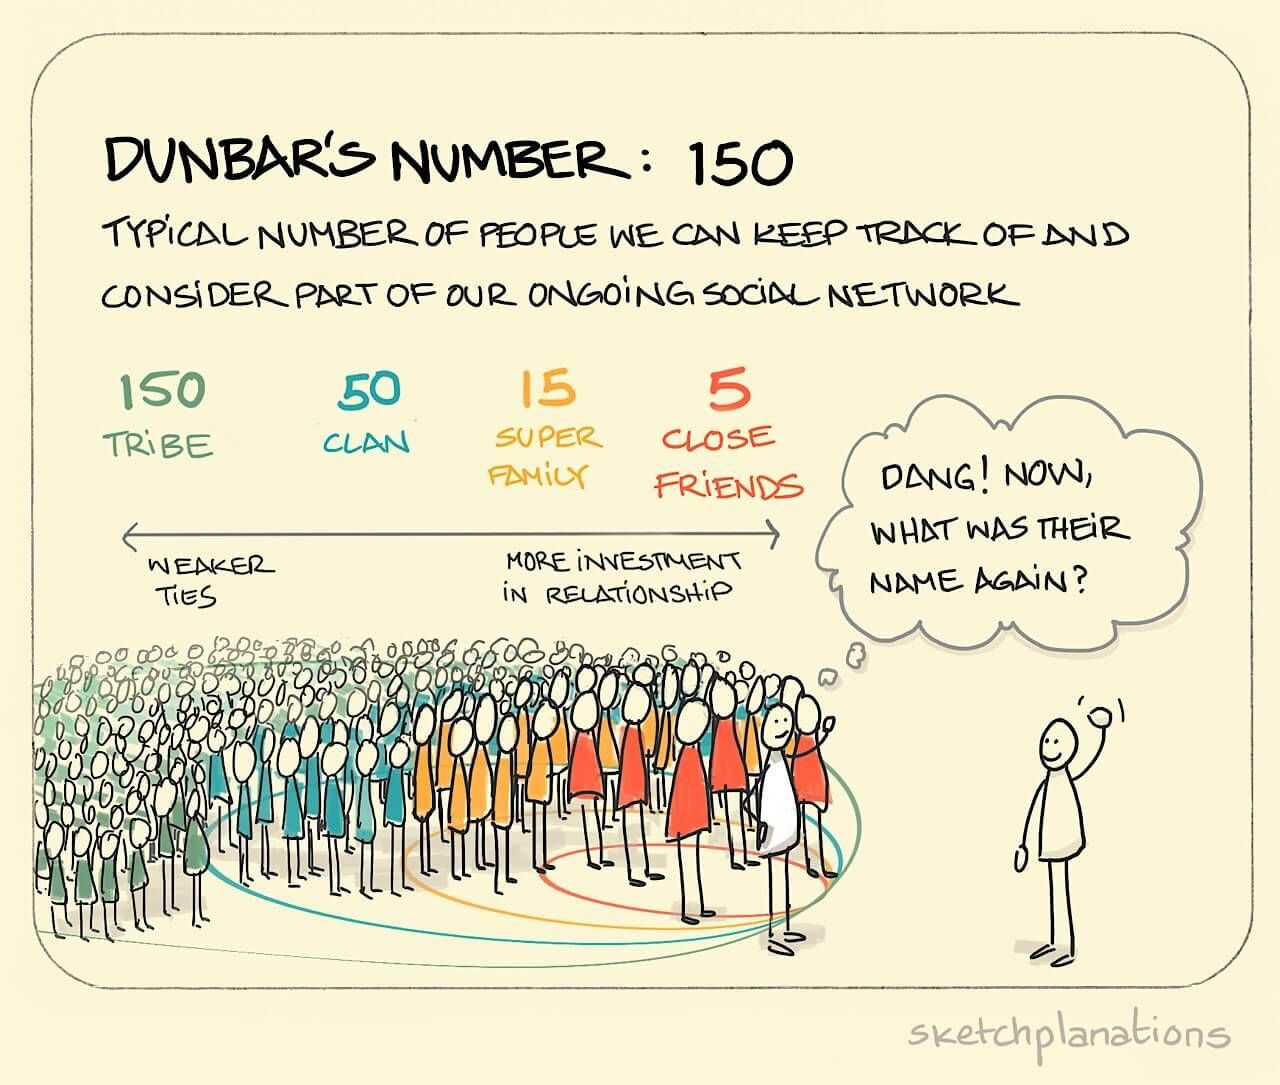 DUNBAR'S NUMBER: 150
TYPICAL NUMBER OF PEOPLE WE CAN KEEP TRACK OF AND
CONSIDER PART OF OUR ONGOING SOCIAL NETWORK
150
TRIBE
50
CLAN
15
SUPER
FAMILY
5
CLOSE
FRIENDS
WEAKER
TIES
MORE INVESTMENT
IN RELATIONSHIP
DANG! NOW,
WHAT WAS THEIR
NAME AGAIN?
sketchplanations